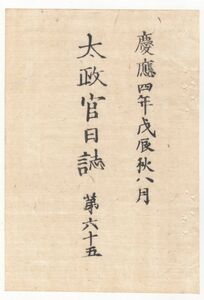 慶應四年戊辰秋八月
太政官日誌 第六十五